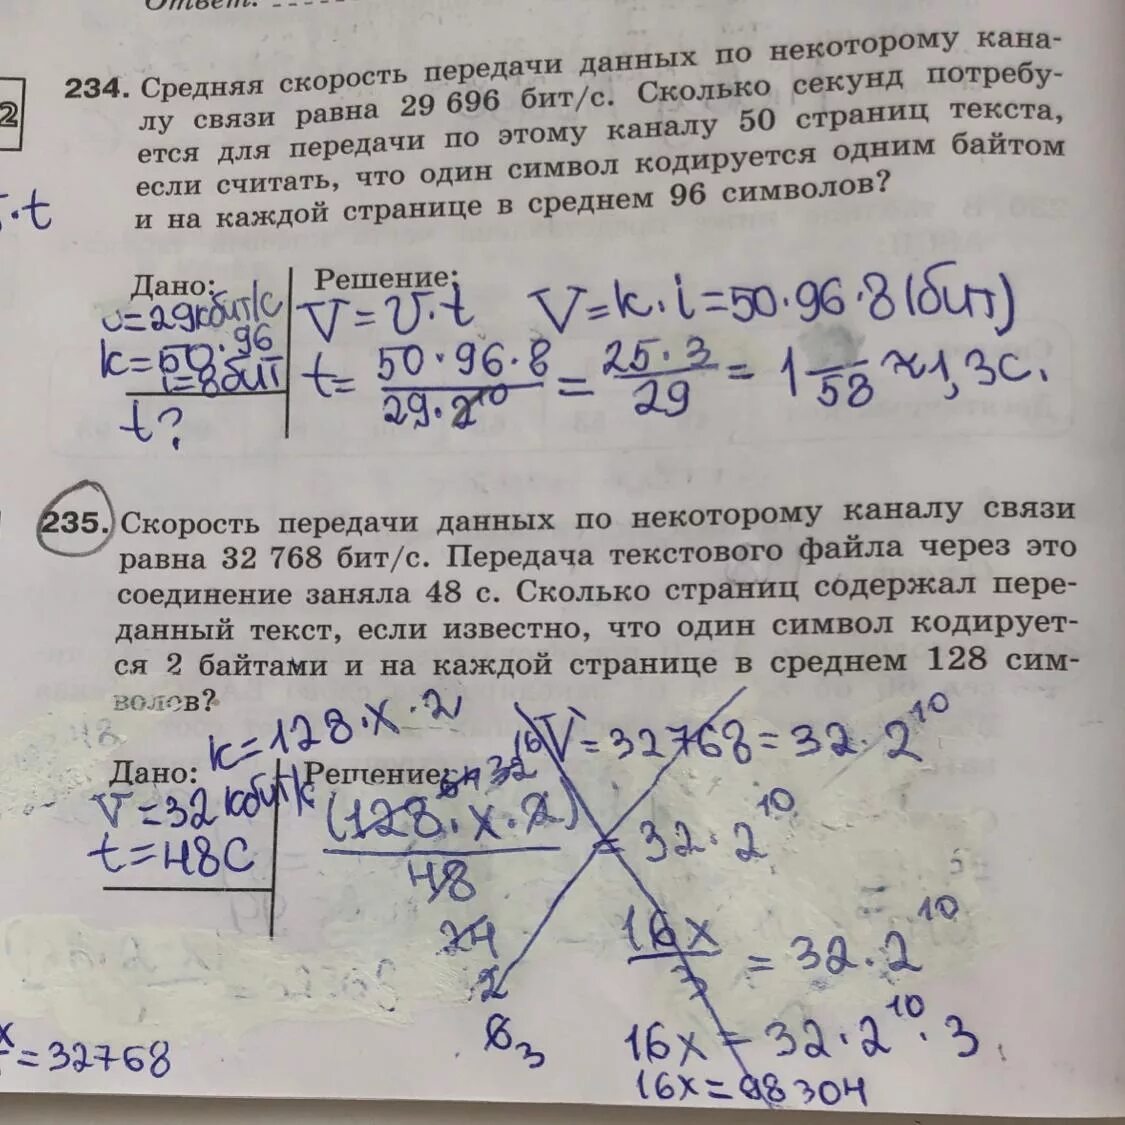 Ответ:
234. Средняя скорость передачи данных по некоторому кана-
лу связи равна 29 696 бит/с. Сколько секунд потребу-
ется для передачи по этому каналу 50 страниц текста,
если считать, что один символ кодируется одним байтом
и на каждой странице в среднем 96 символов?
2
·t
Дано:
υ=29кбит/с
k=50·96
i=8бит
t?
Решение:
V=υ·t V=k·i=50·96·8(бит)
t= 50·96·8 / 29·2^10 = 25·3 / 29 = 1 17/58 ≈1,3с.
235. Скорость передачи данных по некоторому каналу связи
равна 32 768 бит/с. Передача текстового файла через это
соединение заняла 48 с. Сколько страниц содержал пере-
данный текст, если известно, что один символ кодирует-
ся 2 байтами и на каждой странице в среднем 128 сим-
волов?
k=128·x·2
Дано:
V=32кбит/с
t=48С
Решение:
V=32768=32·2^10
(128·x·2) / 48 = 32·2^10
64 32 16
24
2
6 3
16x / 3 = 32·2^10
16x=32·2^10·3
16x=98304
x
=32768